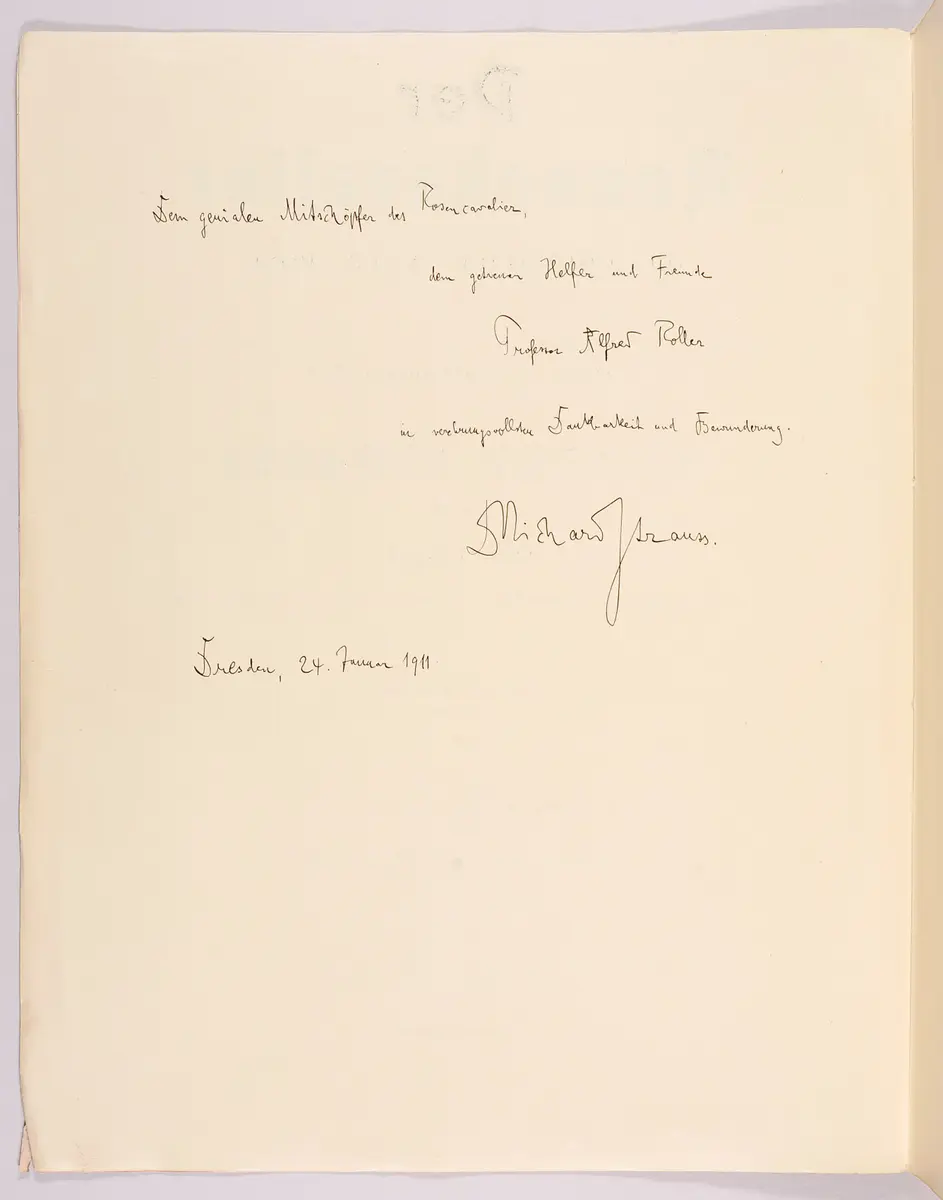 Dem genialen Mitschöpfer des Rosencavalier,
dem getreuen Helfer und Freunde
Professor Alfred Roller
in verehrungsvollster Dankbarkeit und Bewunderung.
DRichard Strauss.
Dresden, 24. Januar 1911